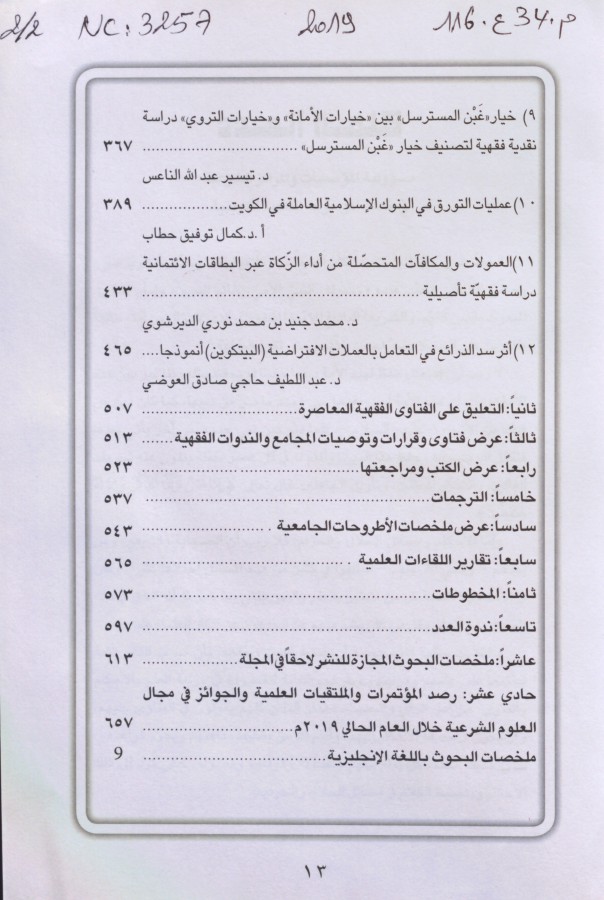 2/2 NC: 3257 2019 م.34 ع.116
٩) خيار «غَبْن المسترسل» بين «خيارات الأمانة» و«خيارات التروي» دراسة
نقدية فقهية لتصنيف خيار «غَبْن المسترسل» ................................ ٣٦٧
د. تيسير عبد الله الناعس
١٠) عمليات التورق في البنوك الإسلامية العاملة في الكويت.................. ٣٨٩
أ.د.كمال توفيق حطاب
١١) العمولات والمكافآت المتحصّلة من أداء الزّكاة عبر البطاقات الائتمانية
دراسة فقهيّة تأصيلية ........................................................ ٤٣٣
د. محمد جنيد بن محمد نوري الديرشوي
١٢) أثر سد الذرائع في التعامل بالعملات الافتراضية (البيتكوين) أنموذجا.... ٤٦٥
د. عبد اللطيف حاجي صادق العوضي
ثانياً: التعليق على الفتاوى الفقهية المعاصرة................................ ٥٠٧
ثالثاً: عرض فتاوى وقرارات وتوصيات المجامع والندوات الفقهية............ ٥١٣
رابعاً: عرض الكتب ومراجعتها............................................. ٥٢٣
خامساً: الترجمات .......................................................... ٥٣٧
سادساً: عرض ملخصات الأطروحات الجامعية ............................. ٥٤٣
سابعاً: تقارير اللقاءات العلمية ............................................ ٥٦٥
ثامناً: المخطوطات.......................................................... ٥٧٣
تاسعاً: ندوة العدد.......................................................... ٥٩٧
عاشراً: ملخصات البحوث المجازة للنشر لاحقاً في المجلة..................... ٦١٣
حادي عشر: رصد المؤتمرات والملتقيات العلمية والجوائز في مجال
العلوم الشرعية خلال العام الحالي ٢٠١٩م............................... ٦٥٧
ملخصات البحوث باللغة الإنجليزية........................................ 9
١٣